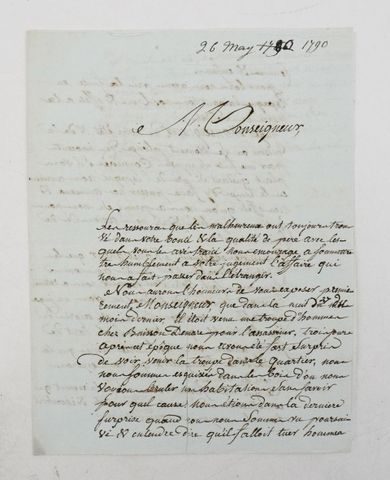 26 May 1790
Monseigneur,
Les ressources que les malheureux ont toujours trou
vé dans votre bonté & la qualité de pere avec les
quels vous les avez traité nous encourage a soumettre
tres humblement a votre jugement L'affaire qui
nous a fait passer dans L'etranger.
Nous aurons l'honneur de vous exposer premie
rement Monseigneur que dans la nuit du
mois dernier. Il étoit venu une troupe d'hommes
chez pour L'assassiner, trois jours
apres cet epoque nous avons été fort surpris
de voir venir la troupe dans le quartier, nous
nous sommes esquivés dans le bois d'ou nous
voyons bruler une habitation sans savoir
pour quel cause, nous etions dans la derniere
surprise quand nous nous sommes vu poursui
vi & entendre dire qu'il falloit tuer hommes